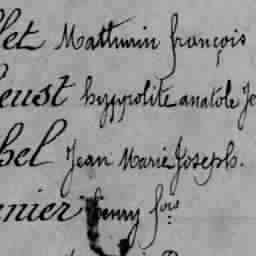 let Mathurin françois
eust hyppolite anatole Je
bel Jean Marie Joseph.
nier henry fois